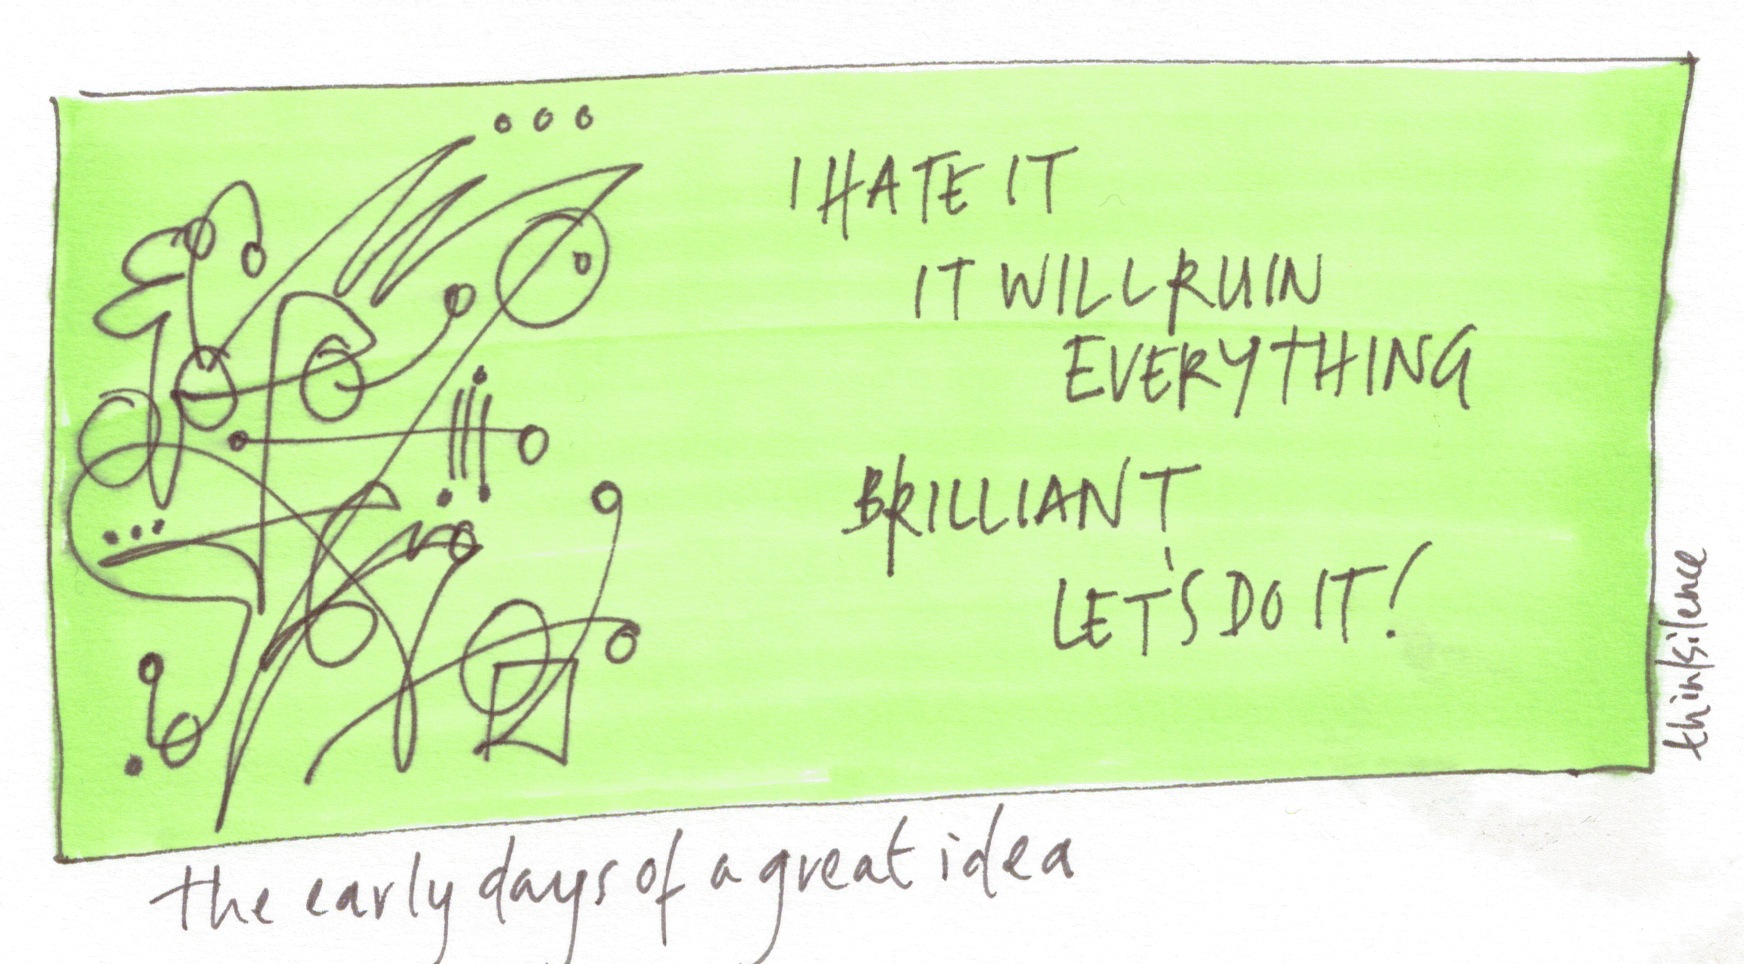 I HATE IT
IT WILL RUIN
EVERYTHING
BRILLIANT
LET'S DO IT!
thinksilence
the early days of a great idea